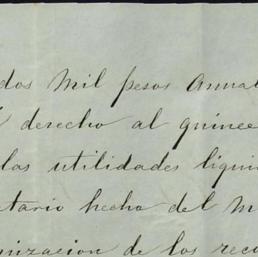 dos Mil pesos Anual
derecho al quince
las utilidades liqui
tario hecho del M
nizacion de los reco